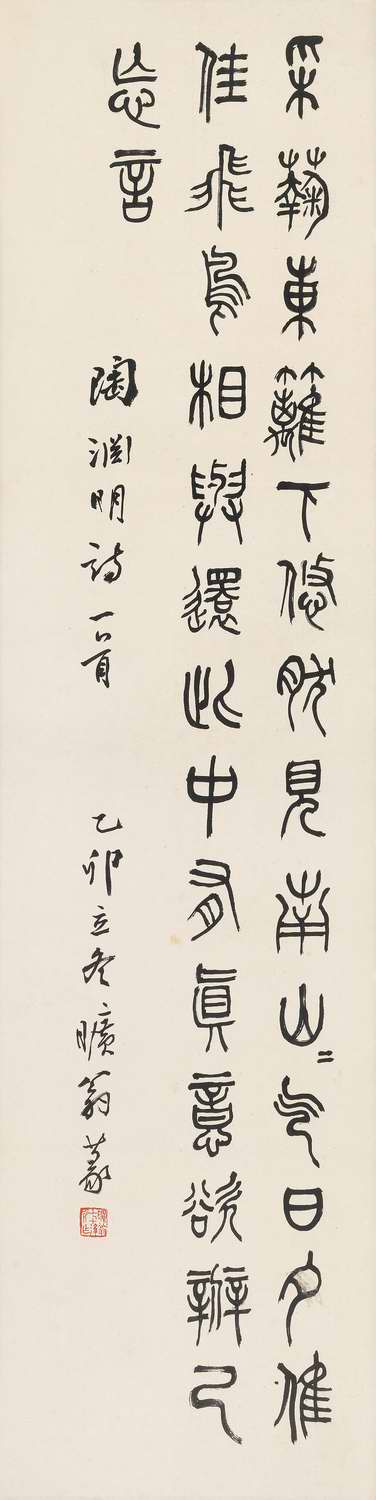 采蘜東籬下悠然見南山〻气日夕倠
佳飛鳥相與還此中有真意欲辨已
忘言
陶渊明詩一首
乙卯立冬曠翁篆